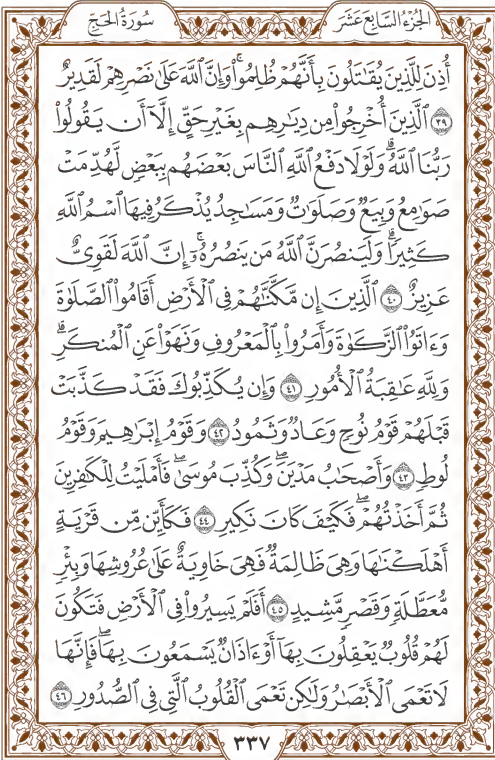 الجُزْءُ السَّابِعَ عَشَرَ
سُورَةُ الحَجِّ
أُذِنَ لِلَّذِينَ يُقَٰتَلُونَ بِأَنَّهُمْ ظُلِمُوا۟ۚ وَإِنَّ ٱللَّهَ عَلَىٰ نَصْرِهِمْ لَقَدِيرٌ
۝٣٩ ٱلَّذِينَ أُخْرِجُوا۟ مِن دِيَٰرِهِم بِغَيْرِ حَقٍّ إِلَّآ أَن يَقُولُوا۟
رَبُّنَا ٱللَّهُۗ وَلَوْلَا دَفْعُ ٱللَّهِ ٱلنَّاسَ بَعْضَهُم بِبَعْضٍ لَّهُدِّمَتْ
صَوَٰمِعُ وَبِيَعٌ وَصَلَوَٰتٌ وَمَسَٰجِدُ يُذْكَرُ فِيهَا ٱسْمُ ٱللَّهِ
كَثِيرًاۗ وَلَيَنصُرَنَّ ٱللَّهُ مَن يَنصُرُهُۥٓۚ إِنَّ ٱللَّهَ لَقَوِىٌّ
عَزِيزٌ ۝٤٠ ٱلَّذِينَ إِن مَّكَّنَّٰهُمْ فِى ٱلْأَرْضِ أَقَامُوا۟ ٱلصَّلَوٰةَ
وَءَاتَوُا۟ ٱلزَّكَوٰةَ وَأَمَرُوا۟ بِٱلْمَعْرُوفِ وَنَهَوْا۟ عَنِ ٱلْمُنكَرِۗ
وَلِلَّهِ عَٰقِبَةُ ٱلْأُمُورِ ۝٤١ وَإِن يُكَذِّبُوكَ فَقَدْ كَذَّبَتْ
قَبْلَهُمْ قَوْمُ نُوحٍ وَعَادٌ وَثَمُودُ ۝٤٢ وَقَوْمُ إِبْرَٰهِيمَ وَقَوْمُ
لُوطٍ ۝٤٣ وَأَصْحَٰبُ مَدْيَنَۖ وَكُذِّبَ مُوسَىٰۖ فَأَمْلَيْتُ لِلْكَٰفِرِينَ
ثُمَّ أَخَذْتُهُمْۖ فَكَيْفَ كَانَ نَكِيرِ ۝٤٤ فَكَأَيِّن مِّن قَرْيَةٍ
أَهْلَكْنَٰهَا وَهِىَ ظَالِمَةٌ فَهِىَ خَاوِيَةٌ عَلَىٰ عُرُوشِهَا وَبِئْرٍ
مُّعَطَّلَةٍ وَقَصْرٍ مَّشِيدٍ ۝٤٥ أَفَلَمْ يَسِيرُوا۟ فِى ٱلْأَرْضِ فَتَكُونَ
لَهُمْ قُلُوبٌ يَعْقِلُونَ بِهَآ أَوْ ءَاذَانٌ يَسْمَعُونَ بِهَاۖ فَإِنَّهَا
لَا تَعْمَى ٱلْأَبْصَٰرُ وَلَٰكِن تَعْمَى ٱلْقُلُوبُ ٱلَّتِى فِى ٱلصُّدُورِ ۝٤٦
٣٣٧